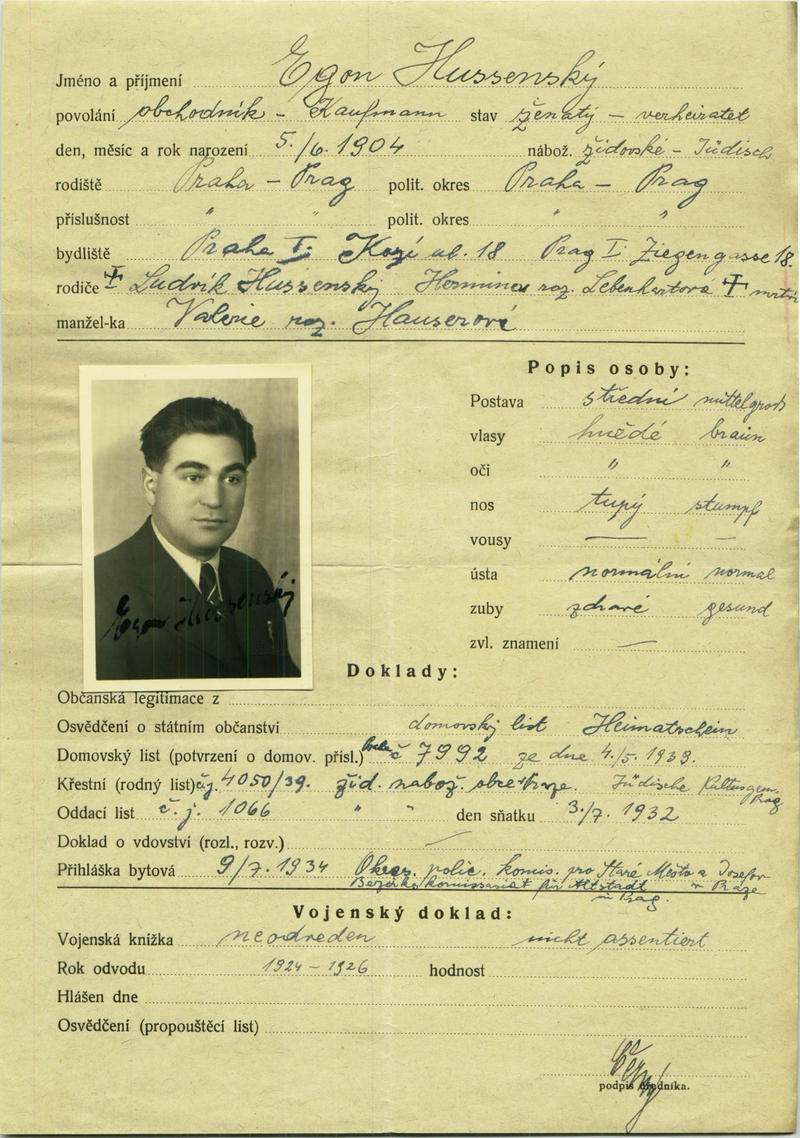 Jméno a příjmení Egon Hussenský
povolání obchodník - Kaufmann stav ženatý - verheiratet
den, měsíc a rok narození 5./6. 1904 nábož. židovské - Jüdisch
rodiště Praha - Prag polit. okres Praha - Prag
příslušnost " " polit. okres " "
bydliště Praha I. Kozí ul. 18 Prag I. Ziegengasse 18.
rodiče Ludvík Hussenský Hermina roz. Lebenhartová
manžel-ka Valerie roz. Hauserová
Popis osoby:
Postava střední mittelgroß
vlasy hnědé braun
oči " "
nos tupý stumpf
vousy — —
ústa normální normal
zuby zdravé gesund
zvl. znamení —
Egon Hussenský
Doklady:
Občanská legitimace z
Osvědčení o státním občanství domovský list Heimatschein
Domovský list (potvrzení o domov. přísl.) č 7992 ze dne 4./5. 1939.
Křestní (rodný list) č.j. 4050/39. žid. nabož. obce Praze. Jüdische Kultusgem. Prag
Oddací list č. j. 1066 " " den sňatku 3./7. 1932
Doklad o vdovství (rozl., rozv.) —
Přihláška bytová 9/7. 1934 Okres. polic. komis. pro Staré Město a Josefov
Bezirkskommissariat für Altstadt v Praze
in Prag.
Vojenský doklad:
Vojenská knížka neodveden nicht assentiert
Rok odvodu 1924 - 1926 hodnost
Hlášen dne
Osvědčení (propouštěcí list)
podpis úředníka.